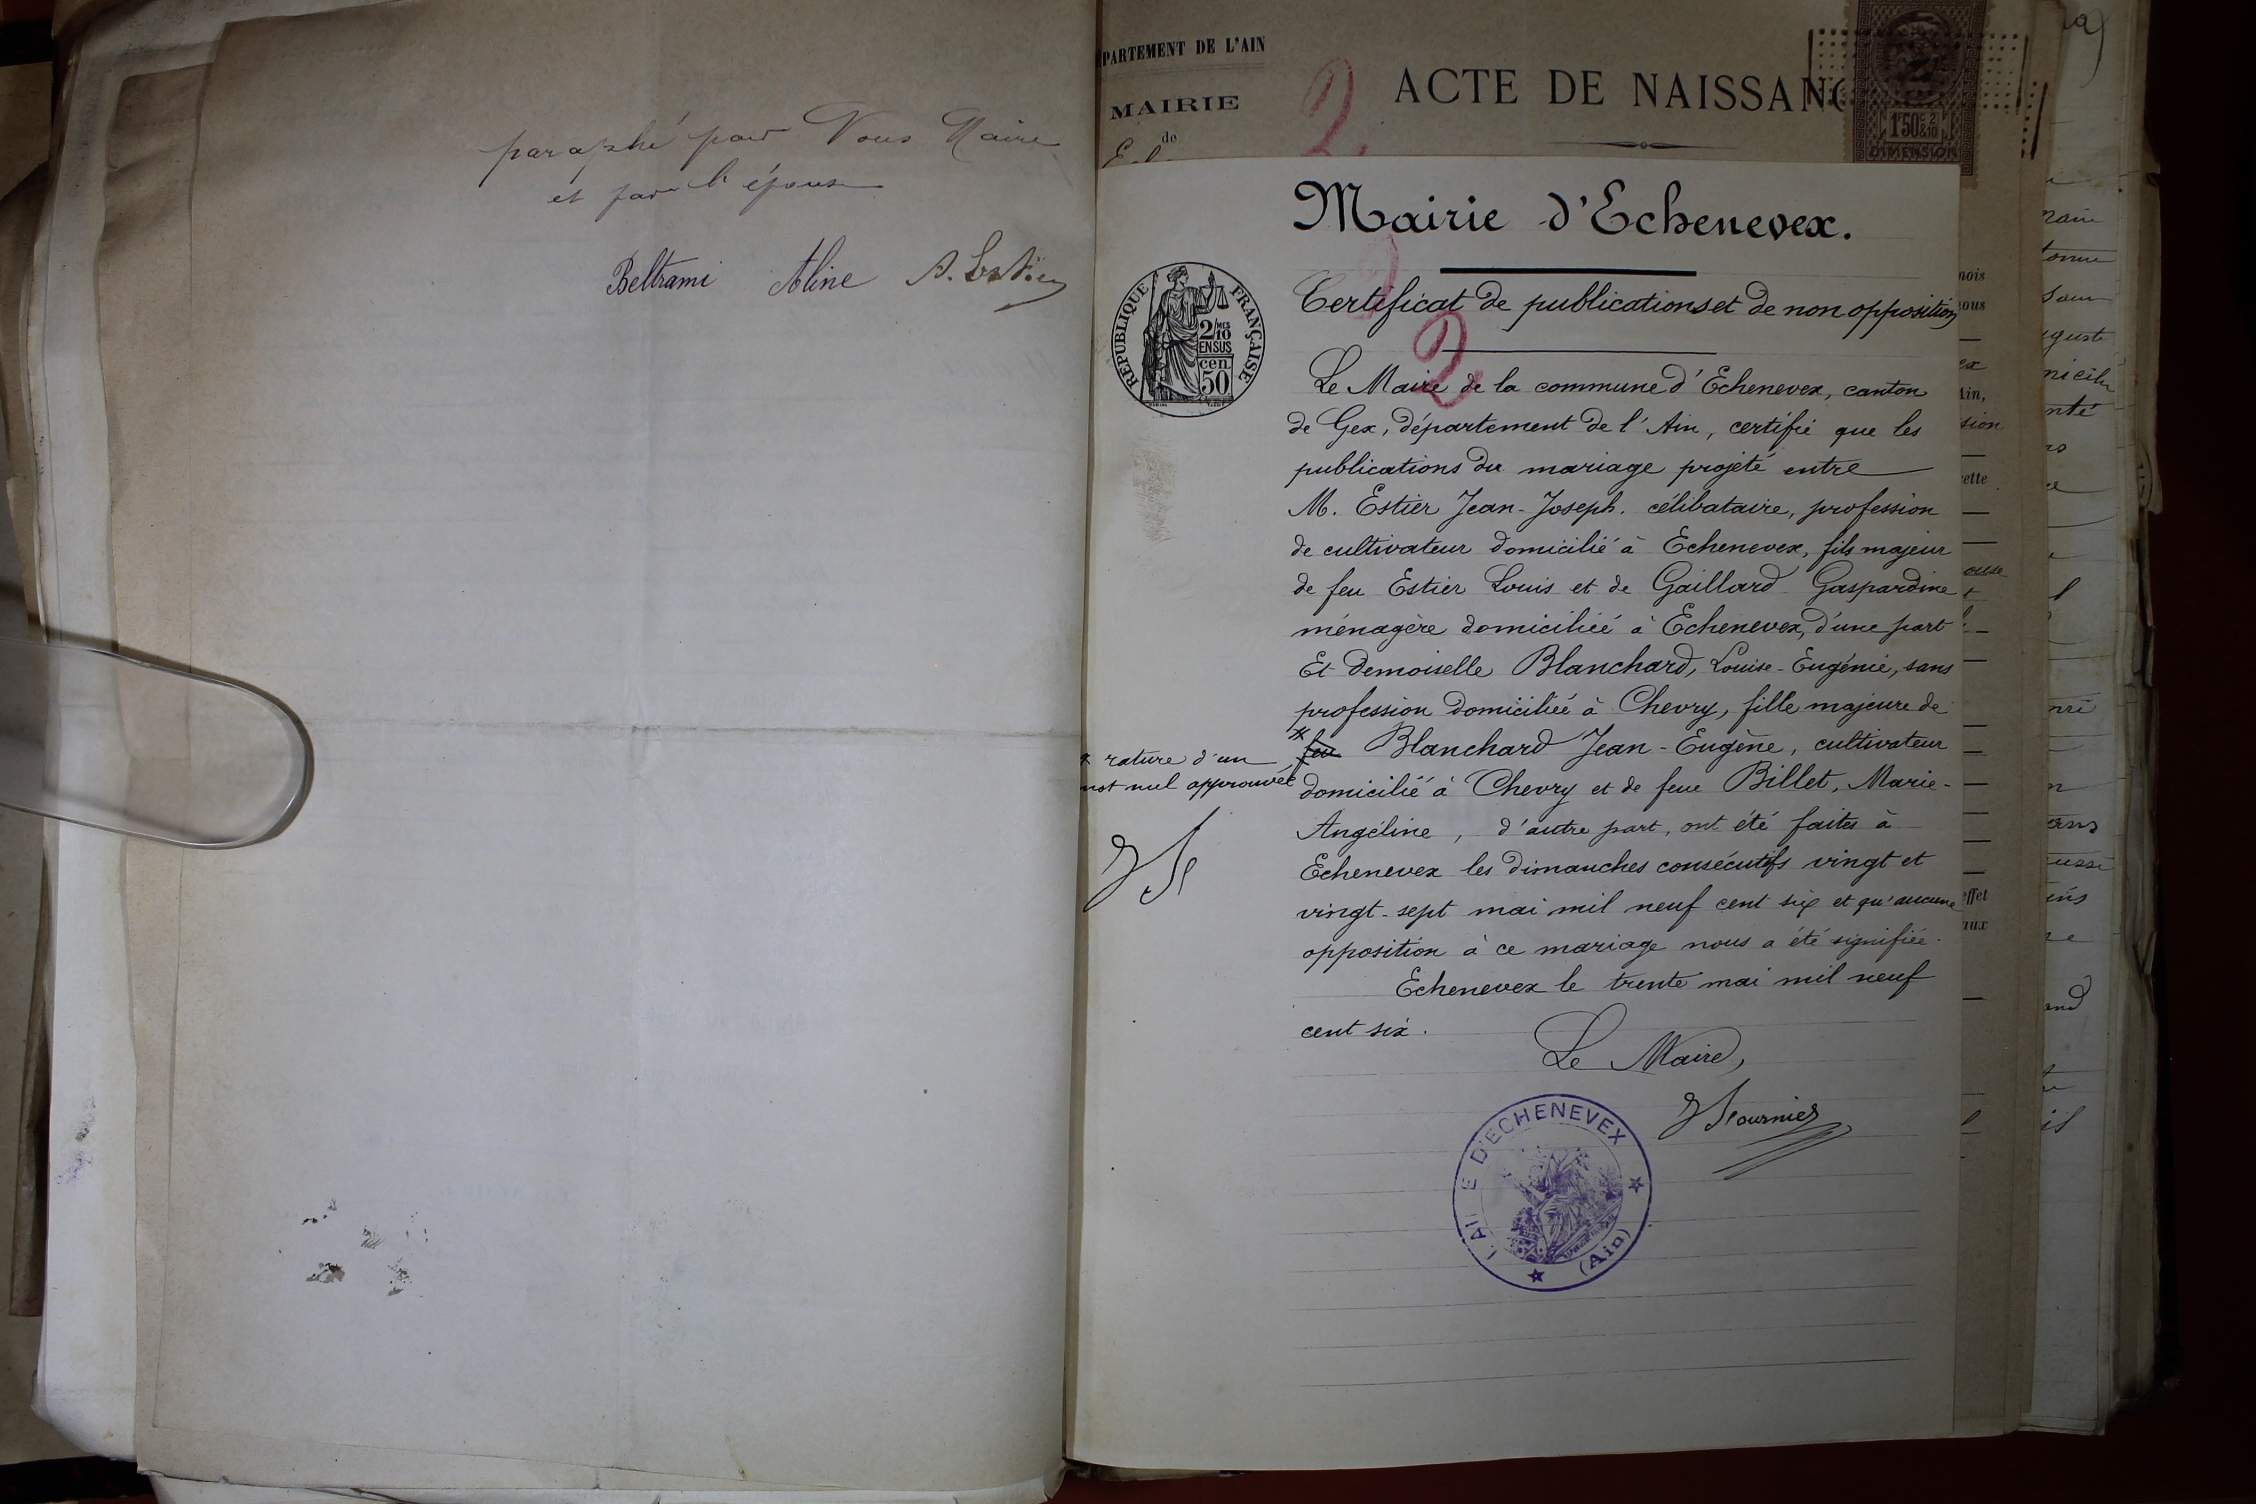 paraphé par Nous Maire
et par l'épouse
Beltrami Aline
PARTEMENT DE L'AIN
MAIRIE
de
2
ACTE DE NAISSANC
1F50C 2/10
DIMENSION
Mairie d'Echenevex.
Certificat de publications et de non opposition
RÉPUBLIQUE FRANÇAISE
2/MES 10
EN SUS
cen.
50
2
Le Maire de la commune d'Echenevex, canton
de Gex, département de l'Ain, certifie que les
publications du mariage projeté entre
M. Estier Jean-Joseph. célibataire, profession
de cultivateur domicilié à Echenevex, fils majeur
de feu Estier Louis et de Gaillard Gaspardine
ménagère domiciliée à Echenevex, d'une part
Et demoiselle Blanchard, Louise-Eugénie, sans
profession domiciliée à Chevry, fille majeure de
* feu Blanchard Jean-Eugène, cultivateur
domicilié à Chevry et de feue Billet, Marie-
Angéline, d'autre part, ont été faites à
Echenevex les dimanches consécutifs vingt et
vingt-sept mai mil neuf cent six et qu'aucune
opposition à ce mariage nous a été signifiée.
Echenevex le trente mai mil neuf
cent six.
Le Maire,
JFournier
* rature d'un
mot nul approuvée
JF
MAIRIE D'ECHENEVEX
(Ain)
mois
nous
ex
Ain,
sion
cette
ouse
effet
aux